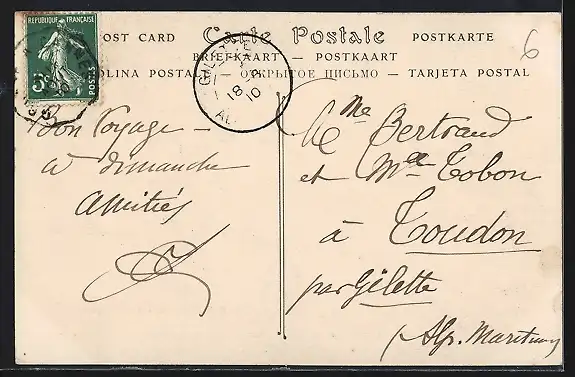 RÉPUBLIQUE FRANÇAISE
5c
POSTES
OST CARD Carte Postale POSTKARTE
BRIEFKAART — POSTKAART
OLINA POSTAL — ОТКРЫТОЕ ПИСЬМО — TARJETA POSTAL
6
18
10
Bon Voyage —
à dimanche
Amitiés
Mme Bertrand
et Melle Tobon
à Toudon
par Gilette
(Alp. Maritimes